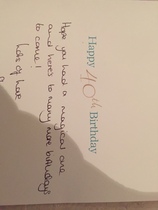 Happy 40th Birthday
Hope you had a magical one
and here's to many more birthdays
to come!
Lots of love